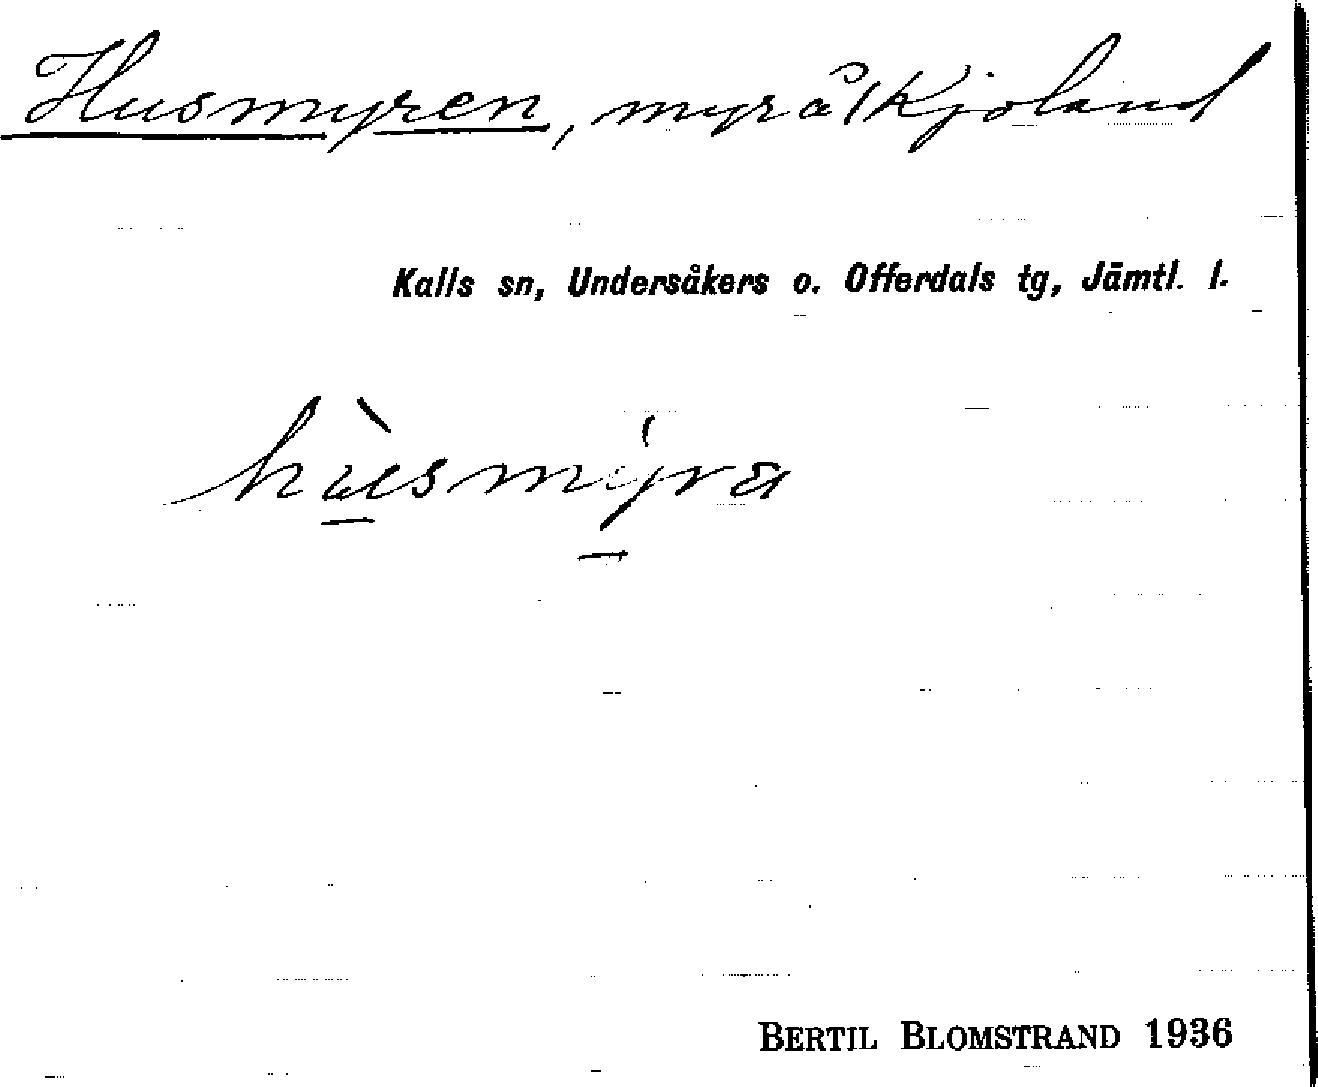 Husmyren, myr å Kjoland
Kalls sn, Undersåkers o. Offerdals tg, Jämtl. l.
hùsmyra
BERTIL BLOMSTRAND 1936